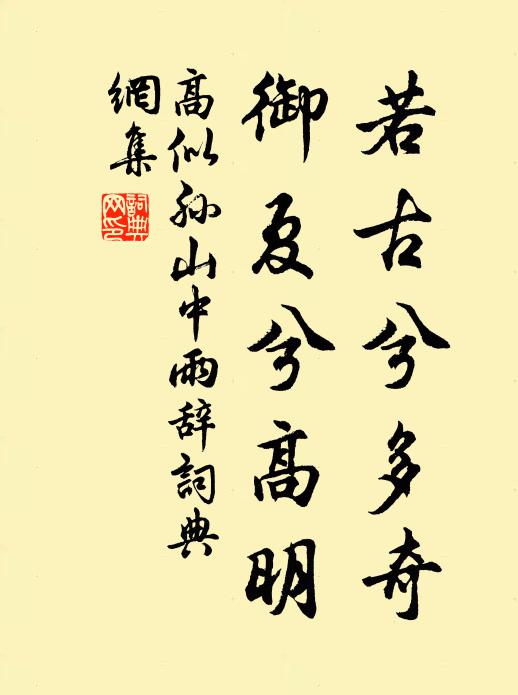 若古兮多奇
御夏兮高明
高似孙山中雨辞詞典
網集
詞典
网印